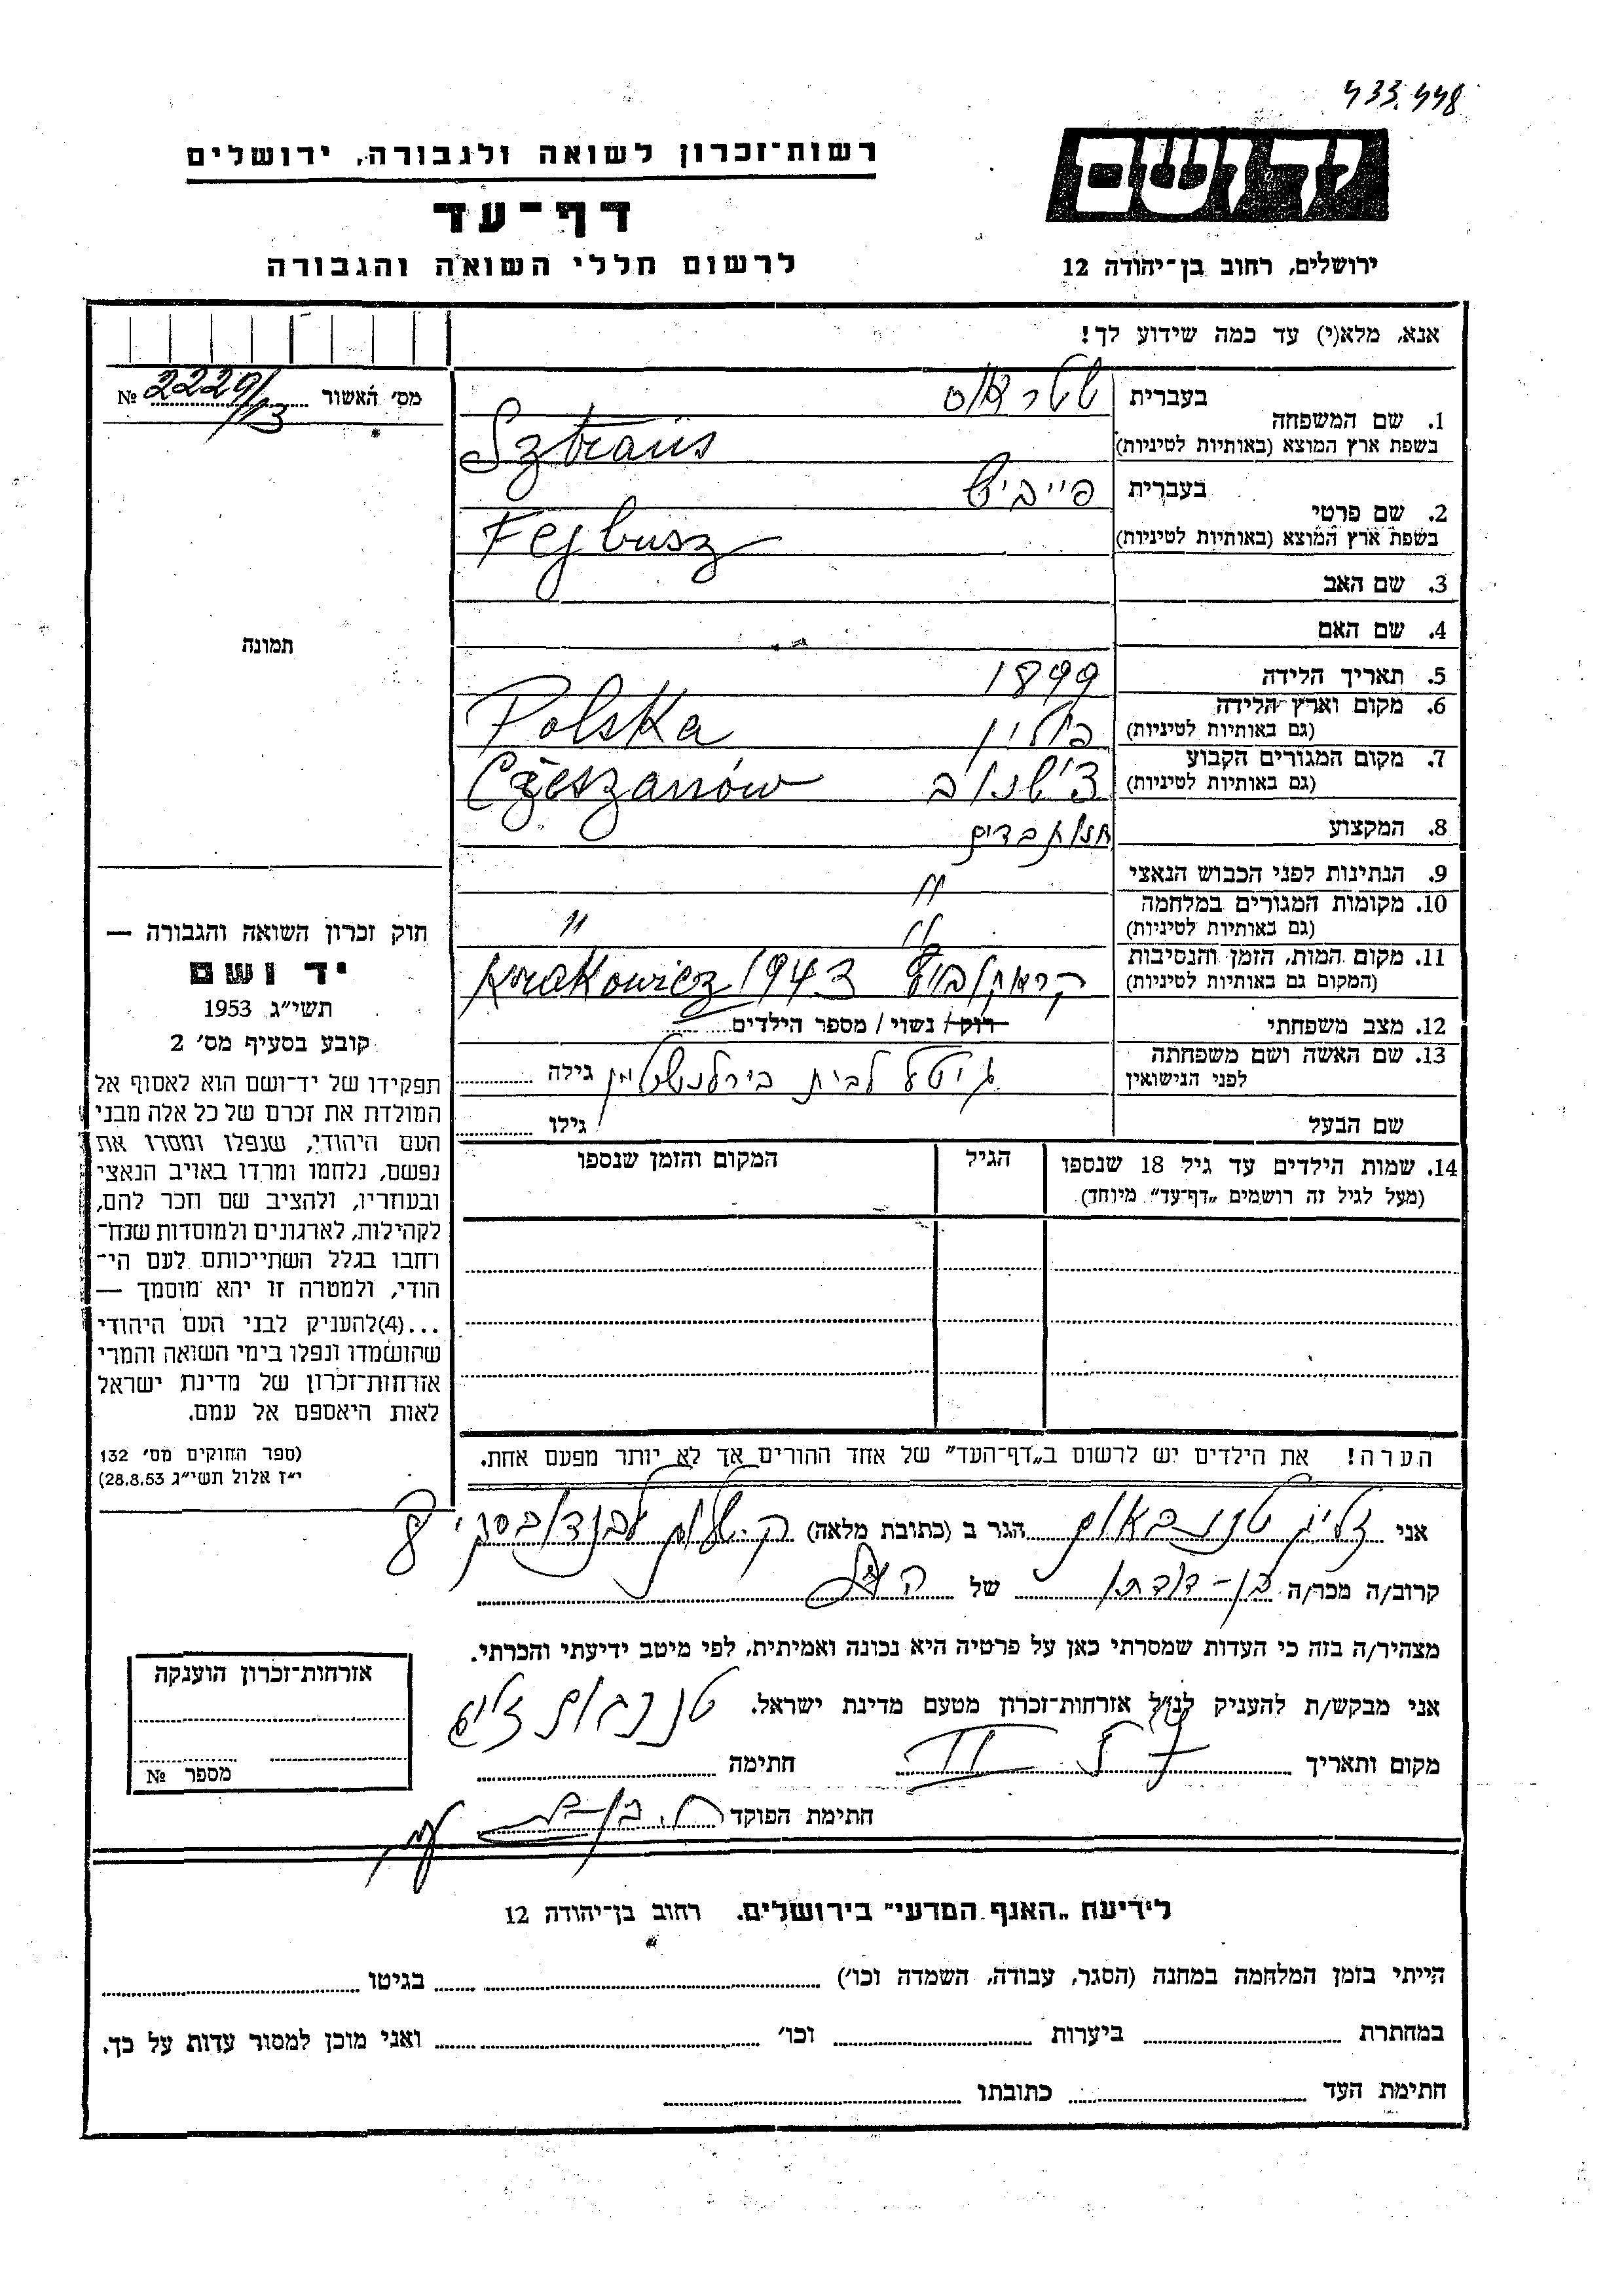 433.448
ידושם
רשות־זכרון לשואה ולגבורה, ירושלים
דף־עד
לרשום חללי השואה והגבורה
ירושלים, רחוב בן־יהודה 12
אנא, מלא(י) עד כמה שידוע לך!
מס׳ האשור № 2229/13
1. שם המשפחה בעברית שטראוס
בשפת ארץ המוצא (באותיות לטיניות) Sztraus
2. שם פרטי בעברית פייביש
בשפת ארץ המוצא (באותיות לטיניות) Fejbusz
3. שם האב
4. שם האם
תמונה
5. תאריך הלידה 1899
6. מקום וארץ הלידה (גם באותיות לטיניות) פולין Polska
7. מקום המגורים הקבוע (גם באותיות לטיניות) צ׳שנוב Czeszanów
8. המקצוע חנות בדים
9. הנתינות לפני הכבוש הנאצי "
10. מקומות המגורים במלחמה (גם באותיות לטיניות) " "
11. מקום המות, הזמן והנסיבות (המקום גם באותיות לטיניות) Krakowicz 1943
12. מצב משפחתי רוק/ נשוי / מספר הילדים
13. שם האשה ושם משפחתה לפני הנישואין גיטל לבית בירלנשטיין גילה
שם הבעל גילו
14. שמות הילדים עד גיל 18 שנספו הגיל המקום והזמן שנספו
(מעל לגיל זה רושמים „דף־עד” מיוחד)
חוק זכרון השואה והגבורה —
יד ושם
תשי״ג 1953
קובע בסעיף מס׳ 2
תפקידו של יד־ושם הוא לאסוף אל
המולדת את זכרם של כל אלה מבני
העם היהודי, שנפלו ומסרו את
נפשם, נלחמו ומרדו באויב הנאצי
ובעוזריו, ולהציב שם וזכר להם,
לקהילות, לארגונים ולמוסדות שנח־
רחבו בגלל השתייכותם לעם הי־
הודי, ולמטרה זו יהא מוסמך —
...(4)להעניק לבני העם היהודי
שהושמדו ונפלו בימי השואה והמרי
אזרחות־זכרון של מדינת ישראל
לאות היאספם אל עמם.
(ספר החוקים מס׳ 132
י״ז אלול תשי״ג 28.8.53)
הערה! את הילדים יש לרשום ב„דף־העד” של אחד ההורים אך לא יותר מפעם אחת.
אני זליג טננבאום הגר ב (כתובת מלאה)
קרוב/ה מכר/ה בן־דודתו של הנ״ל
מצהיר/ה בזה כי העדות שמסרתי כאן על פרטיה היא נכונה ואמיתית, לפי מיטב ידיעתי והכרתי.
אני מבקש/ת להעניק לנ״ל אזרחות־זכרון מטעם מדינת ישראל.
מקום ותאריך חתימה טננבוים זליג
חתימת הפוקד
אזרחות־זכרון הוענקה
מספר №
לידיעת „האגף המדעי” בירושלים. רחוב בן־יהודה 12
הייתי בזמן המלחמה במחנה (הסגר, עבודה, השמדה וכו׳) בגיטו
במחתרת ביערות וכו׳ ואני מוכן למסור עדות על כך.
חתימת העד כתובתו